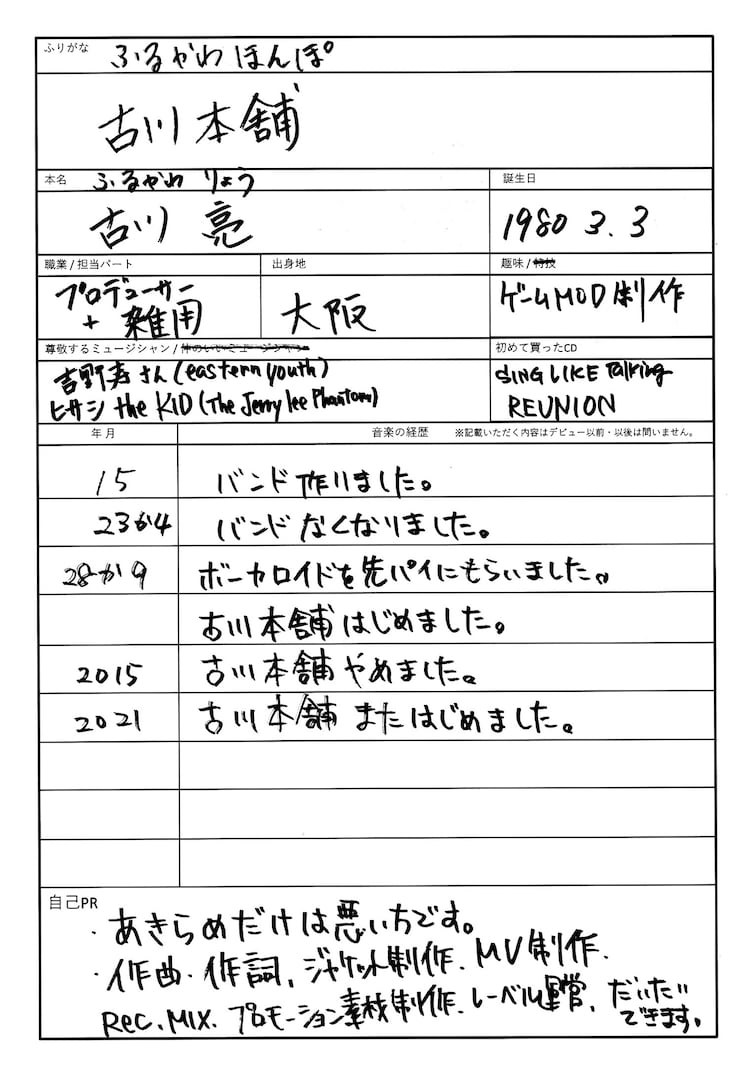 ふりがな ふるかわほんぽ
古川本舗
本名 ふるかわ りょう 誕生日
古川 亮 1980 3. 3
職業 / 担当パート 出身地 趣味 / 特技
プロデューサー 大阪 ゲームMOD制作
+ 雑用
尊敬するミュージシャン / 仲のいいミュージシャン 初めて買ったCD
吉野寿さん (eastern youth) SING LIKE Talking
ヒサシ the KID (The Jerry lee Phantom) REUNION
年 月 音楽の経歴 ※記載いただく内容はデビュー以前・以後は問いません。
15 バンド作りました。
23か4 バンドなくなりました。
28か9 ボーカロイドを先パイにもらいました。
古川本舗はじめました。
2015 古川本舗やめました。
2021 古川本舗またはじめました。
自己PR
・あきらめだけは悪いちです。
・作曲・作詞、ジャケット制作、MV制作、
Rec、MIX、プロモーション素材制作、レーベル運営、だいたい
できます。